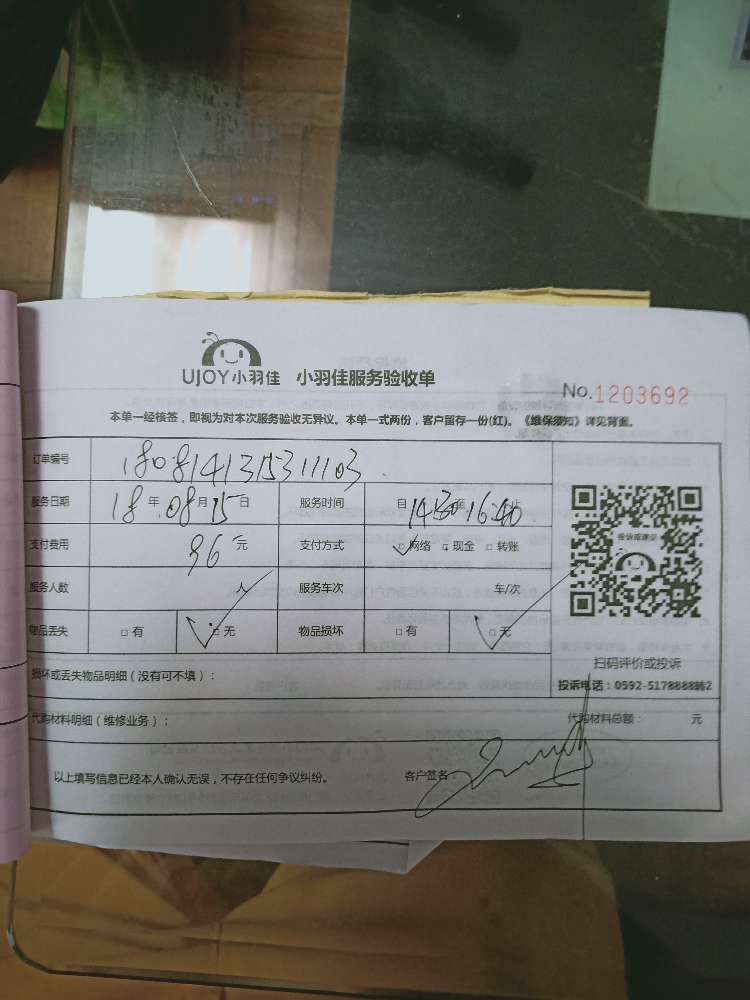 UJOY小羽佳 小羽佳服务验收单
No.1203692
本单一经核签，即视为对本次服务验收无异议。本单一式两份，客户留存一份(红)。《维保须知》详见背面。
订单编号 180814131531103
服务日期 18年.08月15日 服务时间 自14:30至16:40止
支付费用 96元 支付方式 □网络 □现金 □转账
服务人数 人 服务车次 车/次
物品丢失 □有 □无 物品损坏 □有 □无
投诉或建议
扫码评价或投诉
投诉电话：0592-5178888转2
损坏或丢失物品明细（没有可不填）：
代购材料明细（维修业务）： 代购材料总额： 元
以上填写信息已经本人确认无误，不存在任何争议纠纷。 客户签名